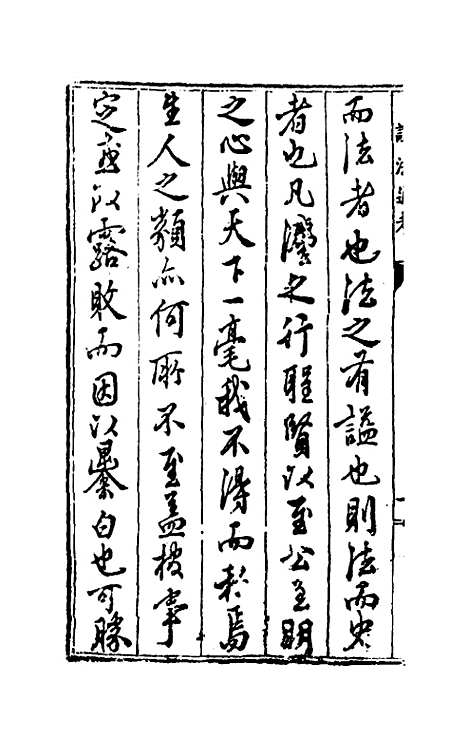 而法者也法之有諡也則法而史
者也凡灋之行聖賢以至公至明
之心與天下一毫我不得而私焉
生人之類亦何所不至蓋棺事
定並以露敗而因以暴白也可勝
諡法通考